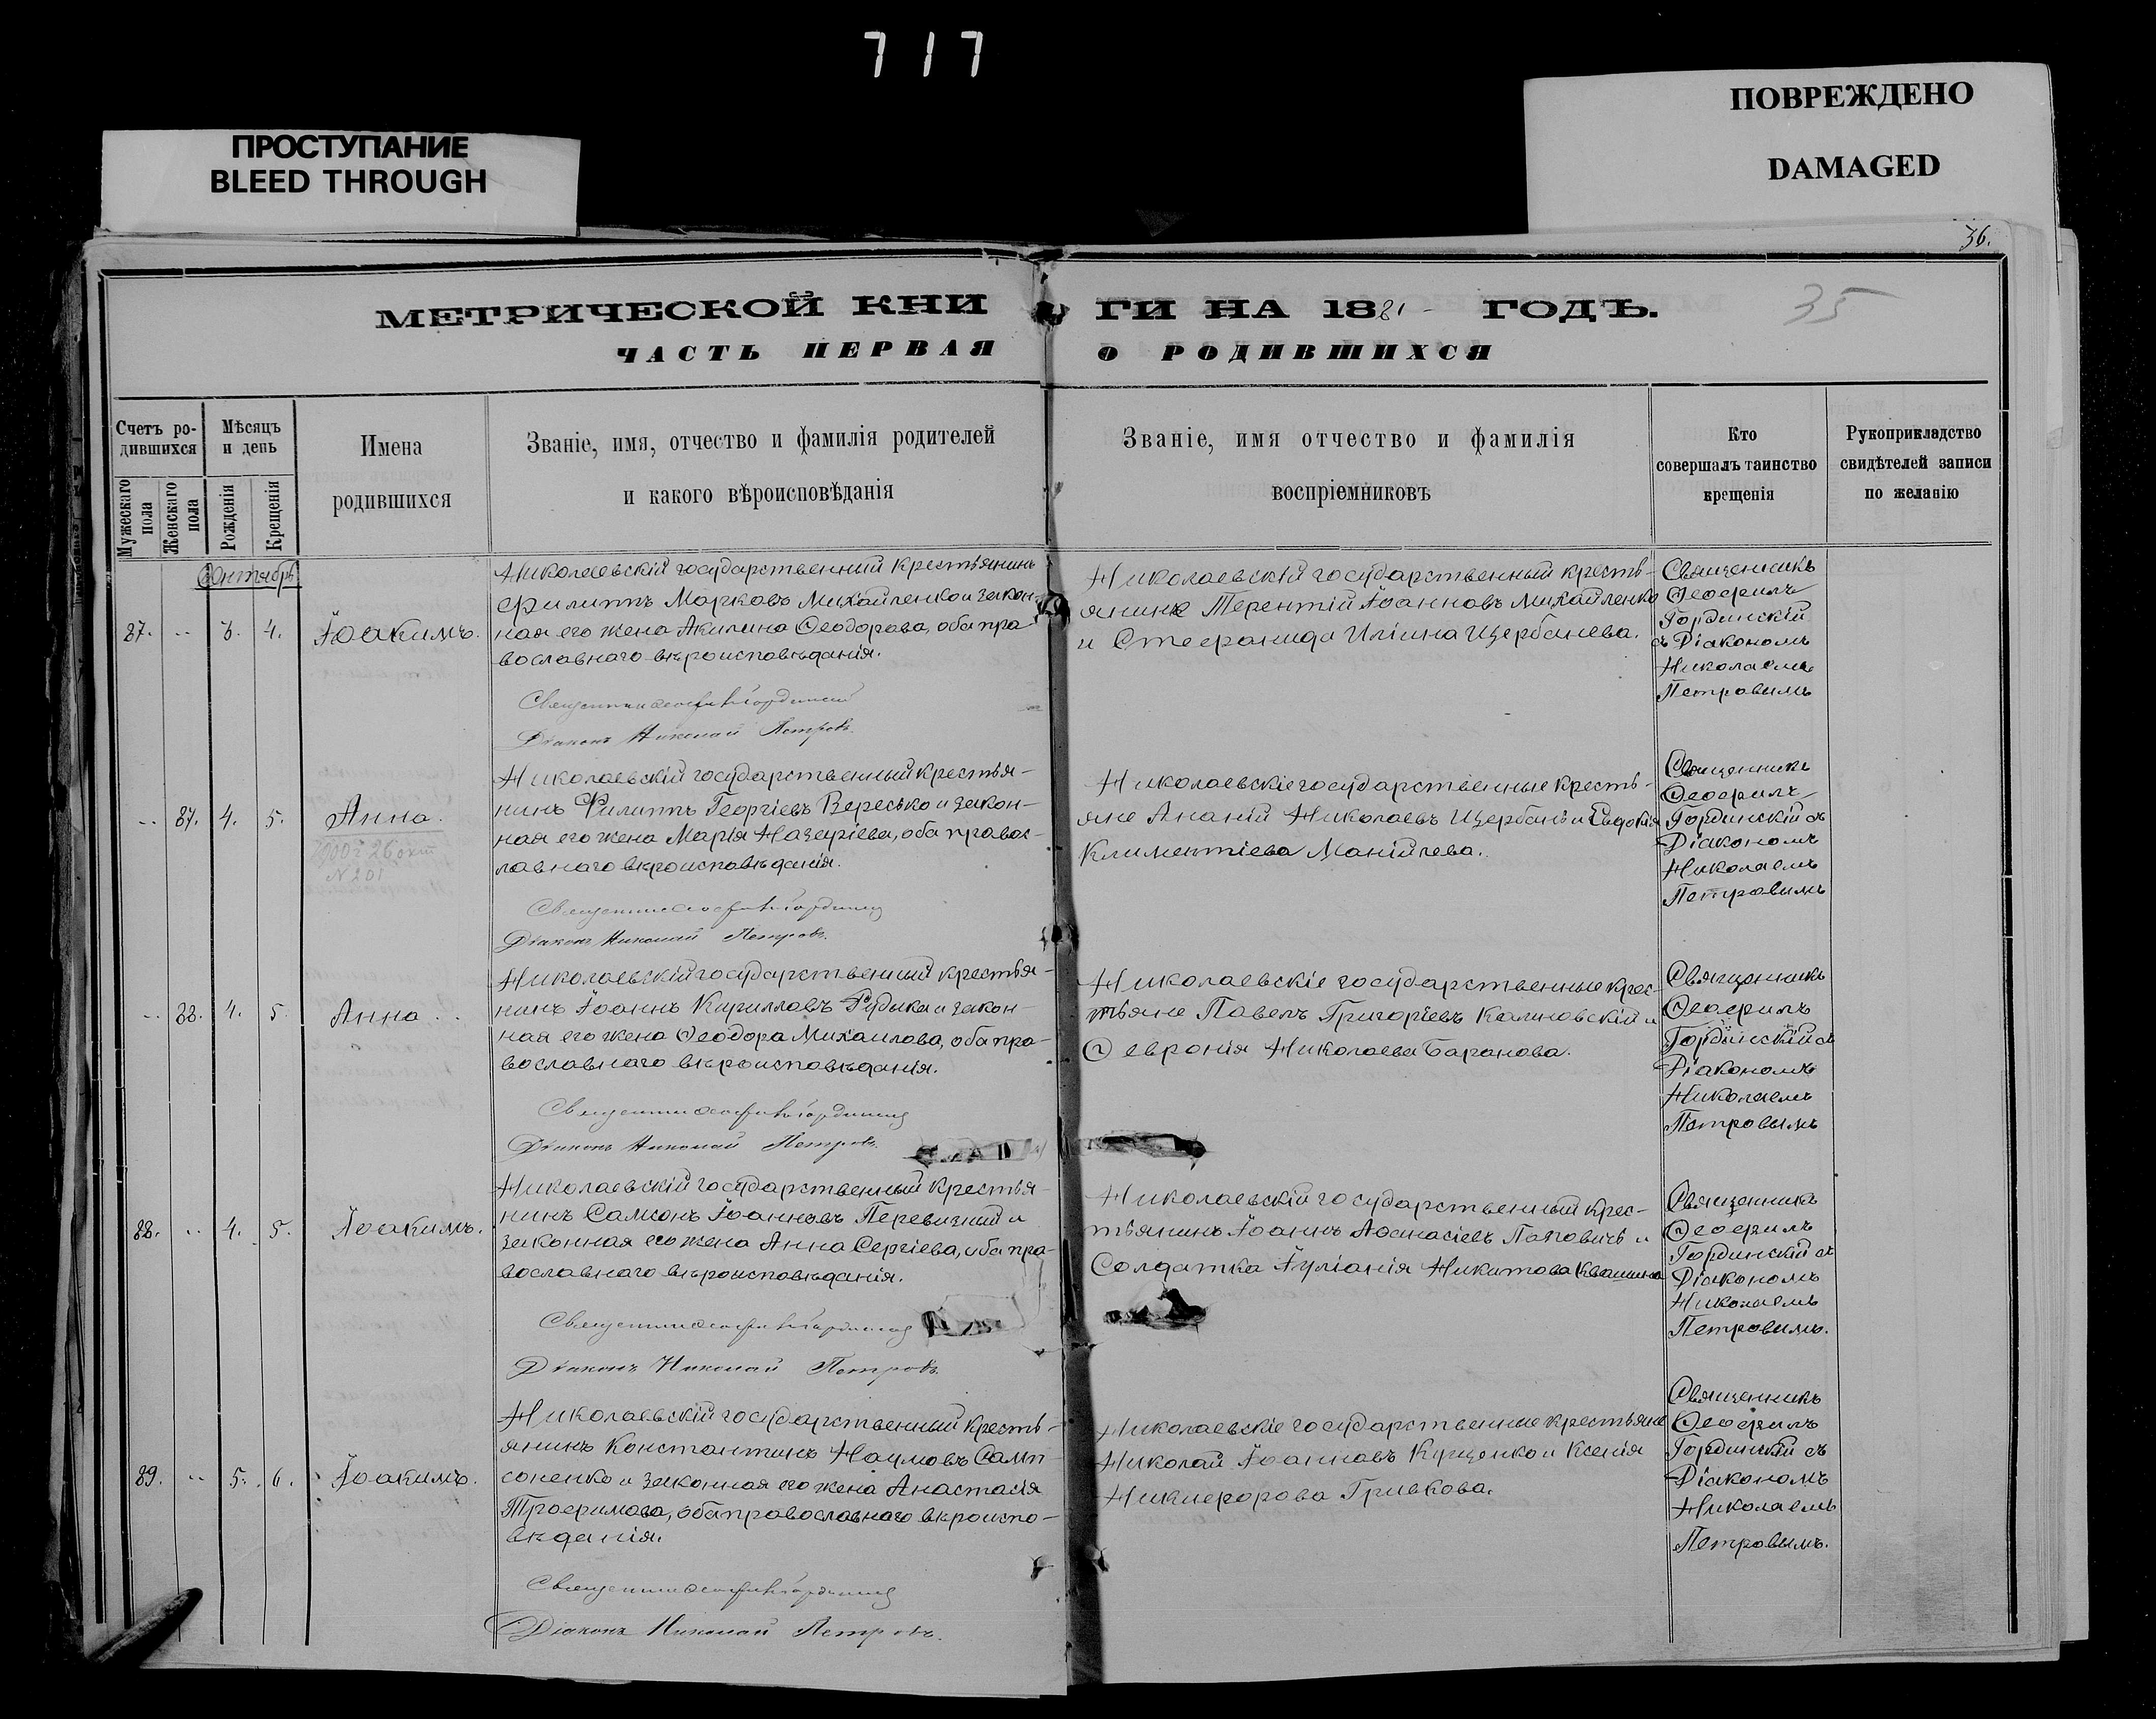 717
ПРОСТУПАНИЕ
BLEED THROUGH
ПОВРЕЖДЕНО
DAMAGED
36.
МЕТРИЧЕСКОЙ КНИГИ НА 1881 ГОДЪ.
35
ЧАСТЬ ПЕРВАЯ О РОДИВШИХСЯ
Счетъ ро-
дившихся
Мужескаго пола
Женскаго пола
Мѣсяцъ
и день
Рожденія
Крещенія
Имена
родившихся
Званіе, имя, отчество и фамилія родителей
и какого вѣроисповѣданія
Званіе, имя отчество и фамилія
воспріемниковъ
Кто
совершалъ таинство
крещенія
Рукоприкладство
свидѣтелей записи
по желанію
Сентябрь
87. .. 4. Іоакимъ.
Николаевскій государственный крестьянинъ
Филиппъ Марковъ Михайленко и закон-
ная его жена Акилина Ѳеодорова, оба пра-
вославнаго вѣроисповѣданія.
Діаконъ Николай Петровъ.
Николаевскій государственный кресть-
янинъ Терентій Іоанновъ Михайленко
и Стефанида Иліина Щербанева.
Священникъ
Ѳеофилъ
Гординскій
съ Діакономъ
Николаемъ
Петровымъ
.. 87. 4. 5. Анна.
26 окт
№ 201
Николаевскій государственный крестья-
нинъ Филиппъ Георгіевъ Вересько и закон-
ная его жена Марія Назаріева, оба правос-
лавнаго вѣроисповѣданія.
Діаконъ Николай Петровъ.
Николаевскіе государственные кресть-
яне Ананій Николаевъ Щербань и Евдокія
Климентіева Манійлева.
Священникъ
Ѳеофилъ
Гординскій съ
Діакономъ
Николаемъ
Петровымъ
.. 88. 4. 5. Анна.
Николаевскій государственный крестья-
нинъ Іоаннъ Кирилловъ Рудыка и закон-
ная его жена Ѳеодора Михаилова, оба пра-
вославнаго вѣроисповѣданія.
Діаконъ Николай Петровъ.
Николаевскіе государственные крес-
тьяне Павелъ Григоріевъ Калиновскій и
Ѳевронія Николаева Баранова.
Священникъ
Ѳеофилъ
Гординскій съ
Діакономъ
Николаемъ
Петровымъ
88. .. 4. 5. Іоакимъ.
Николаевскій государственный крестья-
нинъ Самсонъ Іоанновъ Перевизный и
законная его жена Анна Сергіева, оба пра-
вославнаго вѣроисповѣданія.
Діаконъ Николай Петровъ.
Николаевскій государственный крес-
тьянинъ Іоаннъ Аѳанасіевъ Паповичъ и
Солдатка Іуліанія Никитова Квашина
Священникъ
Ѳеофилъ
Гординскій съ
Діакономъ
Николаемъ
Петровымъ.
89. .. 5. 6. Іоакимъ.
Николаевскій государственный кресть-
янинъ Константинъ Наумовъ Самп-
соненко и законная его жена Анастасія
Трофимова, оба православнаго вѣроиспо-
вѣданія.
Діаконъ Николай Петровъ.
Николаевскіе государственные крестьяне
Николай Іоанновъ Куценко и Ксенія
Никифорова Гривкова.
Священникъ
Ѳеофилъ
Гординскій съ
Діакономъ
Николаемъ
Петровымъ.